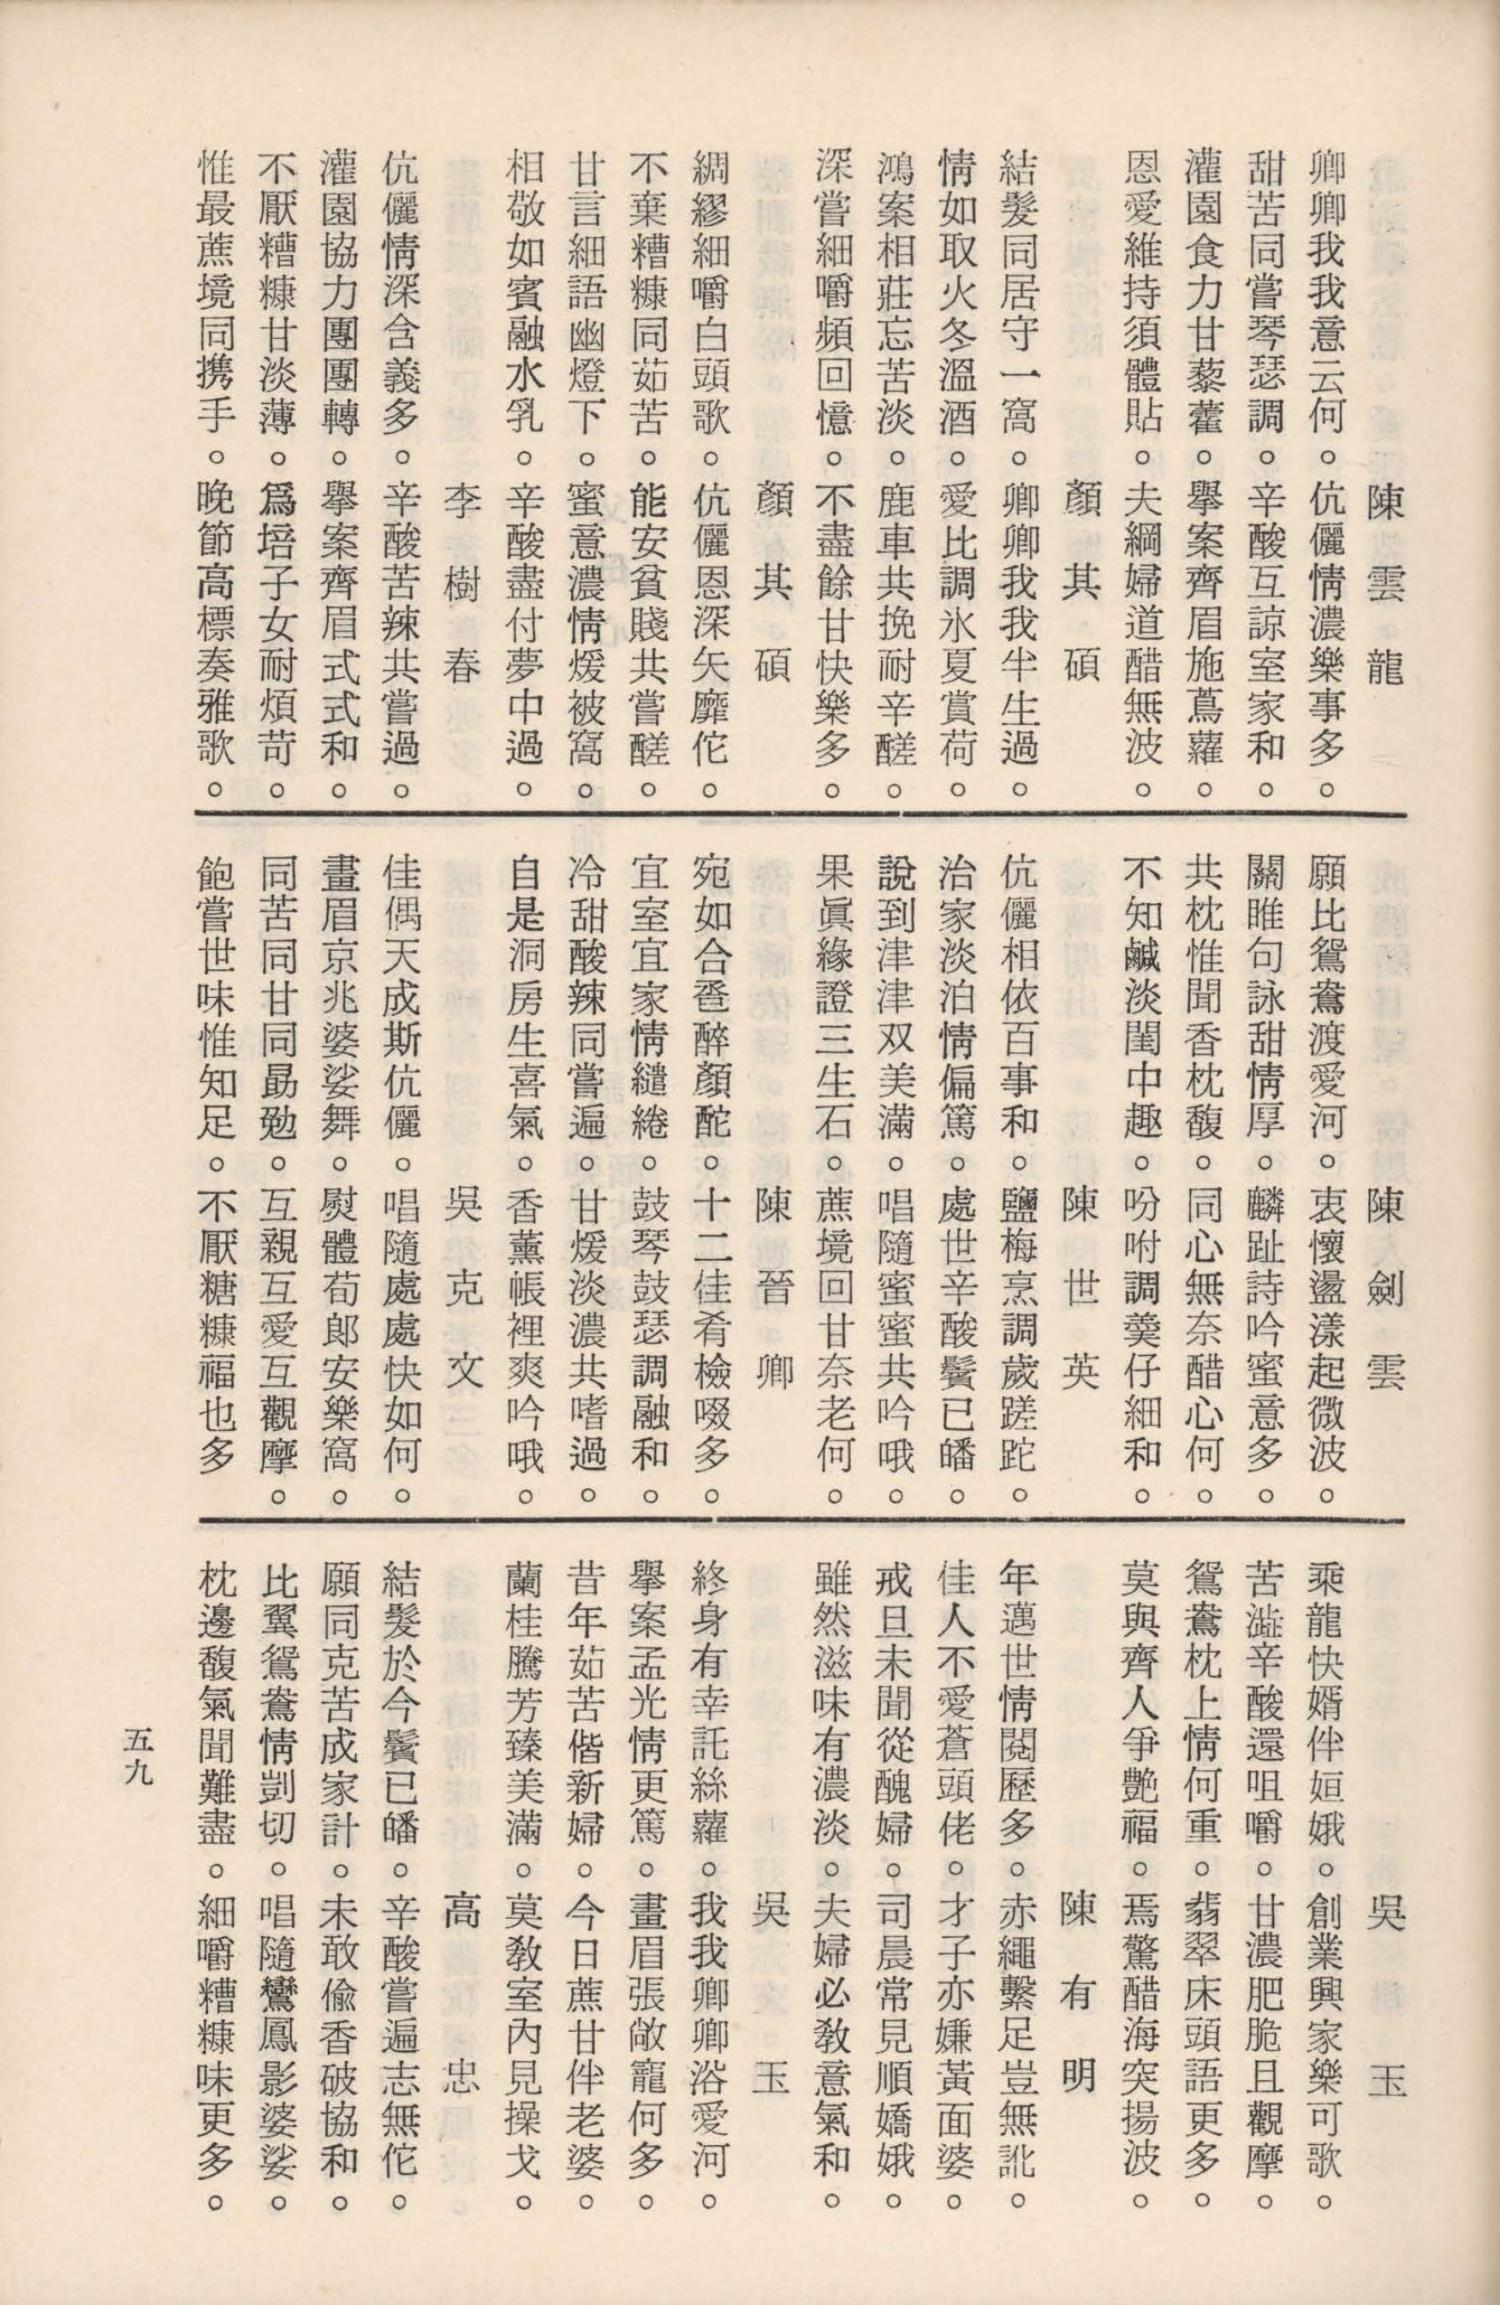 陳雲龍
卿卿我我意云何。伉儷情濃樂事多。
甜苦同嘗琴瑟調。辛酸互諒室家和。
灌園食力甘藜藿。舉案齊眉施蔦蘿。
恩愛維持須體貼。夫綱婦道醋無波。
顏其碩
結髮同居守一窩。卿卿我我半生過。
情如取火冬溫酒。愛比調氷夏賞荷。
鴻案相莊忘苦淡。鹿車共挽耐辛醝。
深嘗細嚼頻回憶。不盡餘甘快樂多。
顏其碩
綢繆細嚼白頭歌。伉儷恩深矢靡佗。
不棄糟糠同茹苦。能安貧賤共嘗醝。
甘言細語幽燈下。蜜意濃情煖被窩。
相敬如賓融水乳。辛酸盡付夢中過。
李樹春
伉儷情深含義多。辛酸苦辣共嘗過。
灌園協力團團轉。舉案齊眉式式和。
不厭糟糠甘淡薄。爲培子女耐煩苛。
惟最蔗境同携手。晚節高標奏雅歌。
陳劍雲
願比鴛鴦渡愛河。衷懷盪漾起微波。
關睢句詠甜情厚。麟趾詩吟蜜意多。
共枕惟聞香枕馥。同心無奈醋心何。
不知鹹淡閨中趣。吩咐調羹仔細和。
陳世英
伉儷相依百事和。鹽梅烹調歲蹉跎。
治家淡泊情偏篤。處世辛酸鬢已皤。
說到津津双美滿。唱隨蜜蜜共吟哦。
果眞緣證三生石。蔗境回甘奈老何。
陳晉卿
宛如合卺醉顏酡。十二佳肴檢啜多。
宜室宜家情繾綣。鼓琴鼓瑟調融和。
冷甜酸辣同嘗遍。甘煖淡濃共嗜過。
自是洞房生喜氣。香薰帳裡爽吟哦。
吳克文
佳偶天成斯伉儷。唱隨處處快如何。
畫眉京兆婆娑舞。熨體荀郎安樂窩。
同苦同甘同勗勉。互親互愛互觀摩。
飽嘗世味惟知足。不厭糖糠福也多
吳玉
乘龍快婿伴姮娥。創業興家樂可歌。
苦澁辛酸還咀嚼。甘濃肥脆且觀摩。
鴛鴦枕上情何重。翡翠床頭語更多。
莫與齊人爭艷福。焉驚醋海突揚波。
陳有明
年邁世情閱歷多。赤繩繫足豈無訛。
佳人不愛蒼頭佬。才子亦嫌黃面婆。
戒旦未聞從醜婦。司晨常見順嬌娥。
雖然滋味有濃淡。夫婦必教意氣和。
吳玉
終身有幸託絲蘿。我我卿卿浴愛河。
擧案孟光情更篤。畫眉張敞寵何多。
昔年茹苦偕新婦。今日蔗甘伴老婆。
蘭桂騰芳臻美滿。莫教室內見操戈。
高忠
結髮於今鬢已皤。辛酸嘗遍志無佗。
願同克苦成家計。未敢偸香破協和。
比翼鴛鴦情剴切。唱隨鸞鳳影婆娑。
枕邊馥氣聞難盡。細嚼糟糠味更多。
五九